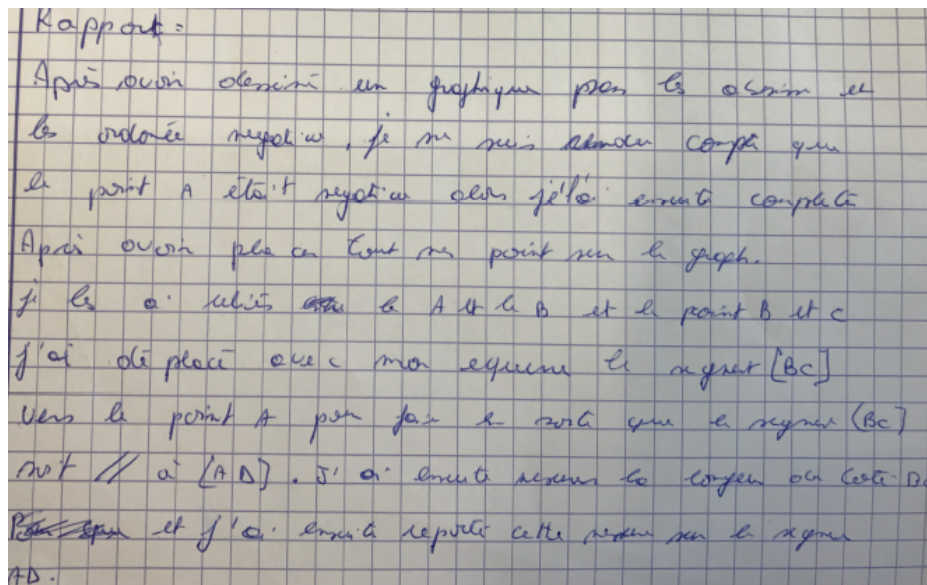 Rapport :
Après avoir dessiné un graphique les et
les ordonée negative, je me suis rendu compte que
le point A était negative alors j'l'ai ensuite complété
Après avoir placer tout mes point sur le graph.
je les ai reliés le A et le B et le point B et C
J'ai déplacé avec mon equerre le segment [BC]
vers le point A pour faire en sorte que le segment [BC]
soit // à [AD]. J'ai ensuite mesurer la longeur du Coté B
et j'ai ensuite reporté cette mesure sur le segment
AD.